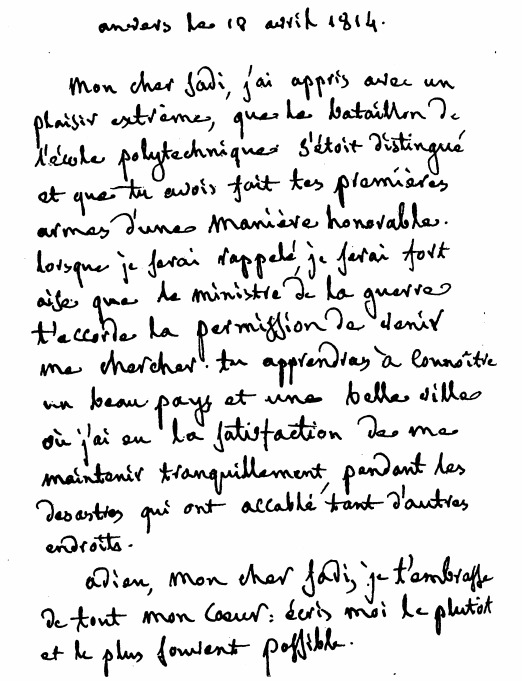 anvers le 18 avril 1814.
Mon cher Sadi, j'ai appris avec un
plaisir extrême, que le bataillon de
l'école polytechnique s'étoit distingué
et que tu avois fait tes premières
armes d'une manière honorable.
lorsque je serai rappelé, je serai fort
aise que le ministre de la guerre
t'accorde la permission de venir
me chercher. tu apprendras à connoître
un beau pays et une belle ville
où j'ai eu la satisfaction de me
maintenir tranquillement, pendant les
desastres qui ont accablé tant d'autres
endroits.
adieu, mon cher Sadi, je t'embrasse
de tout mon Coeur: écris moi le plutot
et le plus souvent possible.